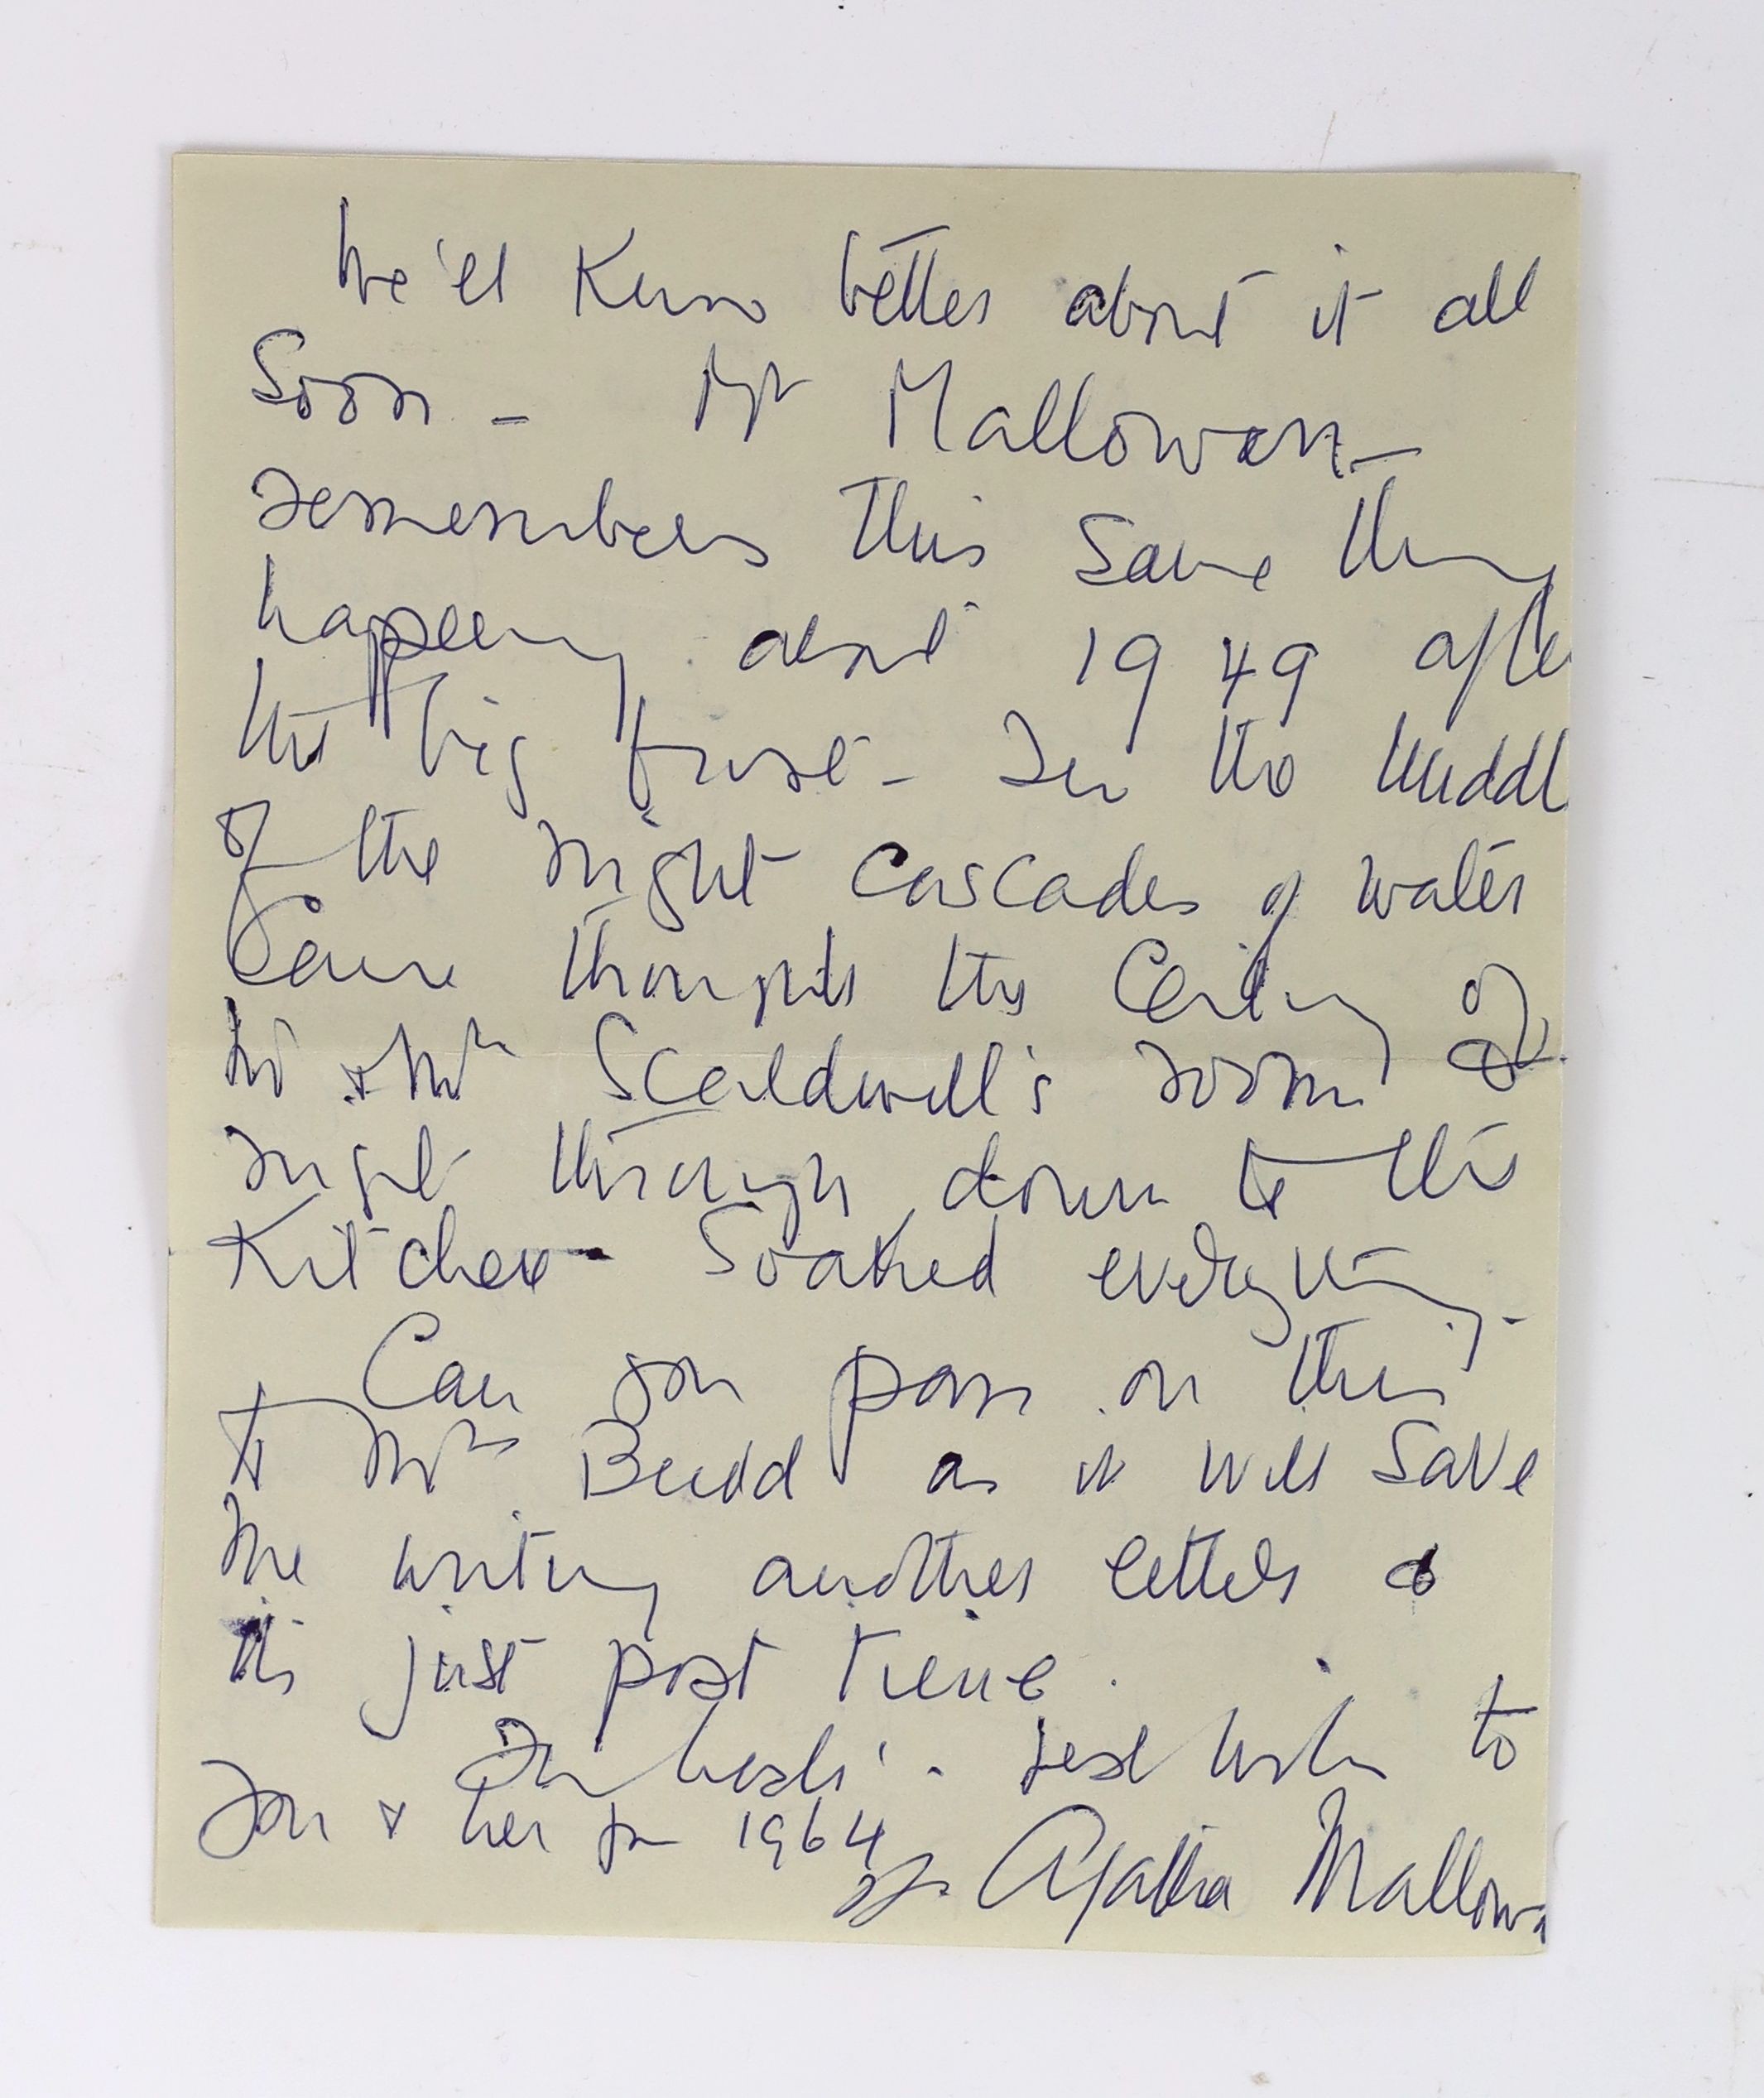 We'll know better about it all
Soon - Mr Mallowan
remembers this same thing
happening about 1949 after
the big frost - In the middl
of the night cascades of water
came through the Ceiling of
Mr & Mrs Scaldwell's room &
right through down to the
Kitchen - Soaked everything.
Can you pass on this
to Mrs Budd as it will save
me writing another letter &
its just post time.
In haste - best wishes to
you & her for 1964
Agatha Mallowa